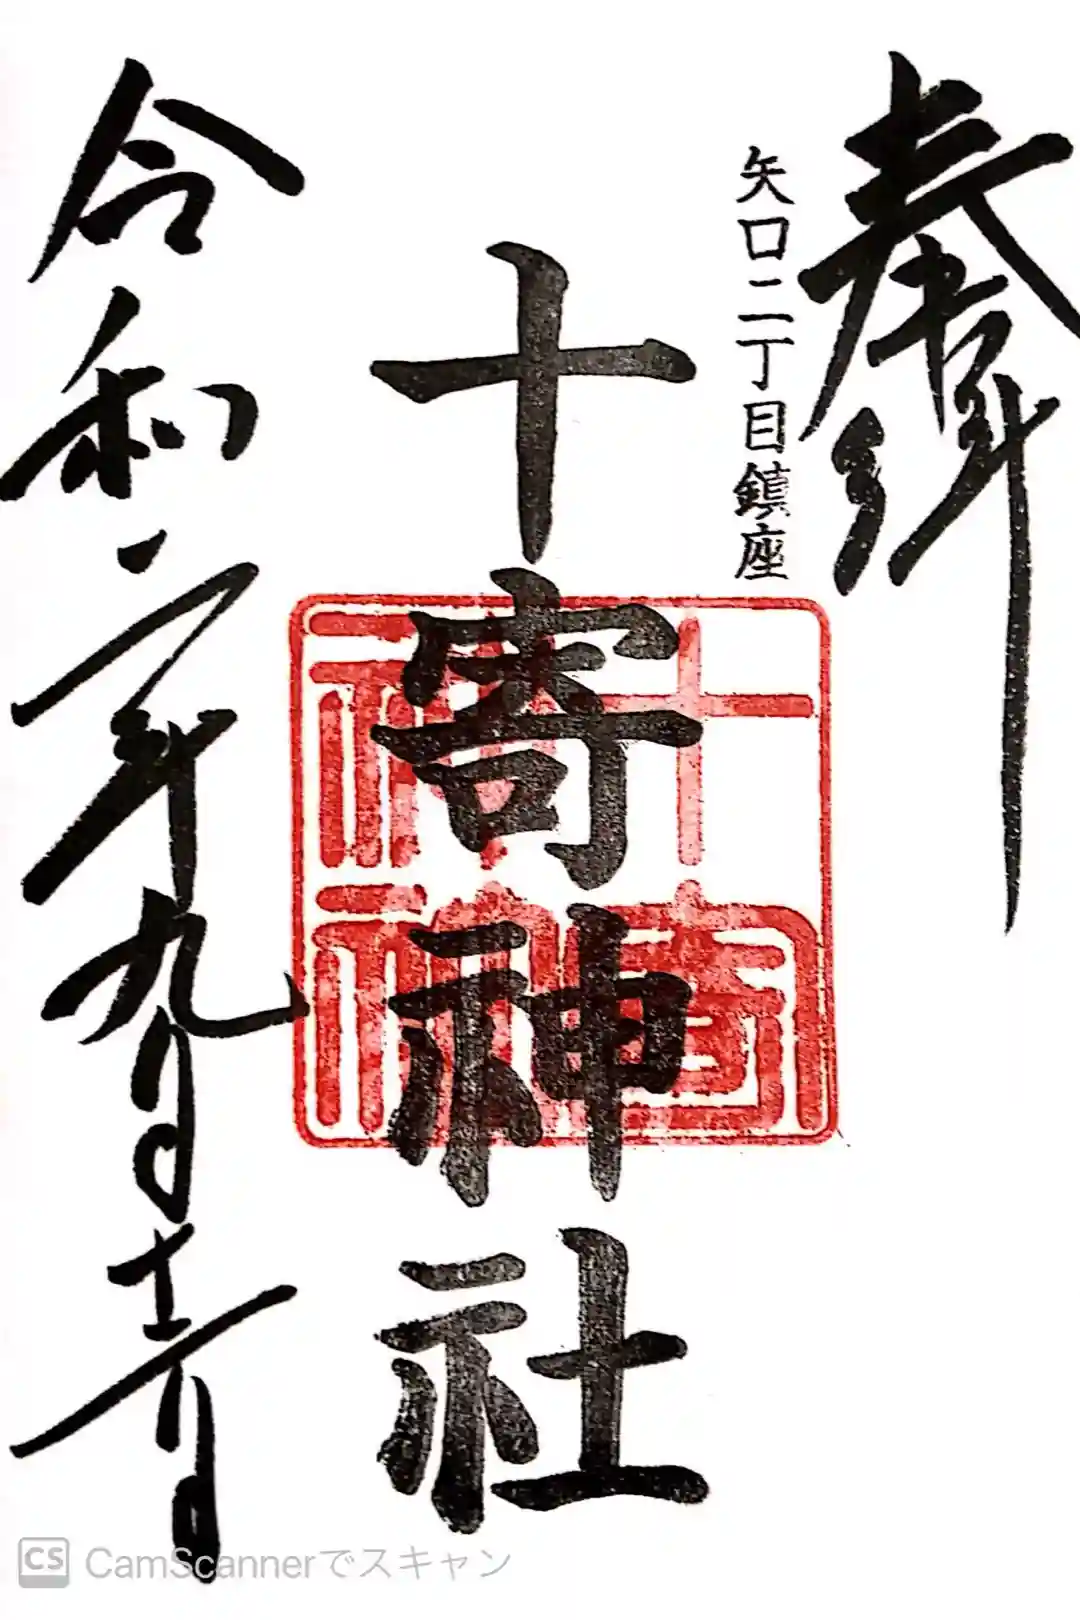 奉拝
矢口二丁目鎮座
十寄神社
十寄
神社
令和二年九月十二日
CS CamScannerでスキャン